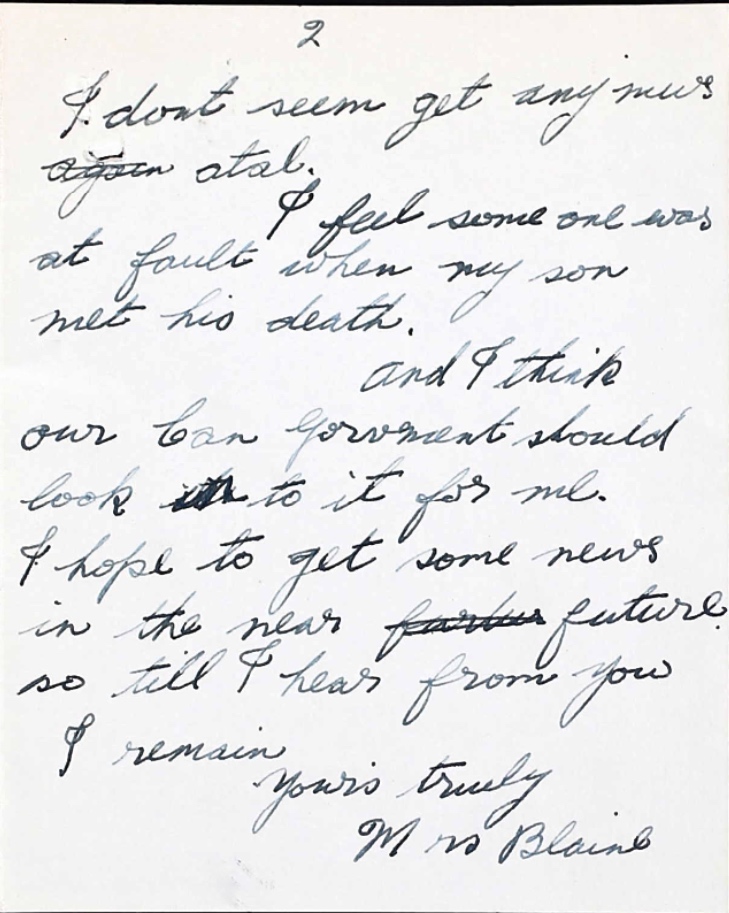 2
I dont seem get any news
again atal.
I feel some one was
at fault when my son
met his death.
and I think
our Can Gorvment should
look to it for me.
I hope to get some news
in the near future.
so till I hear from you
I remain
Yours truly
Mrs Blaine